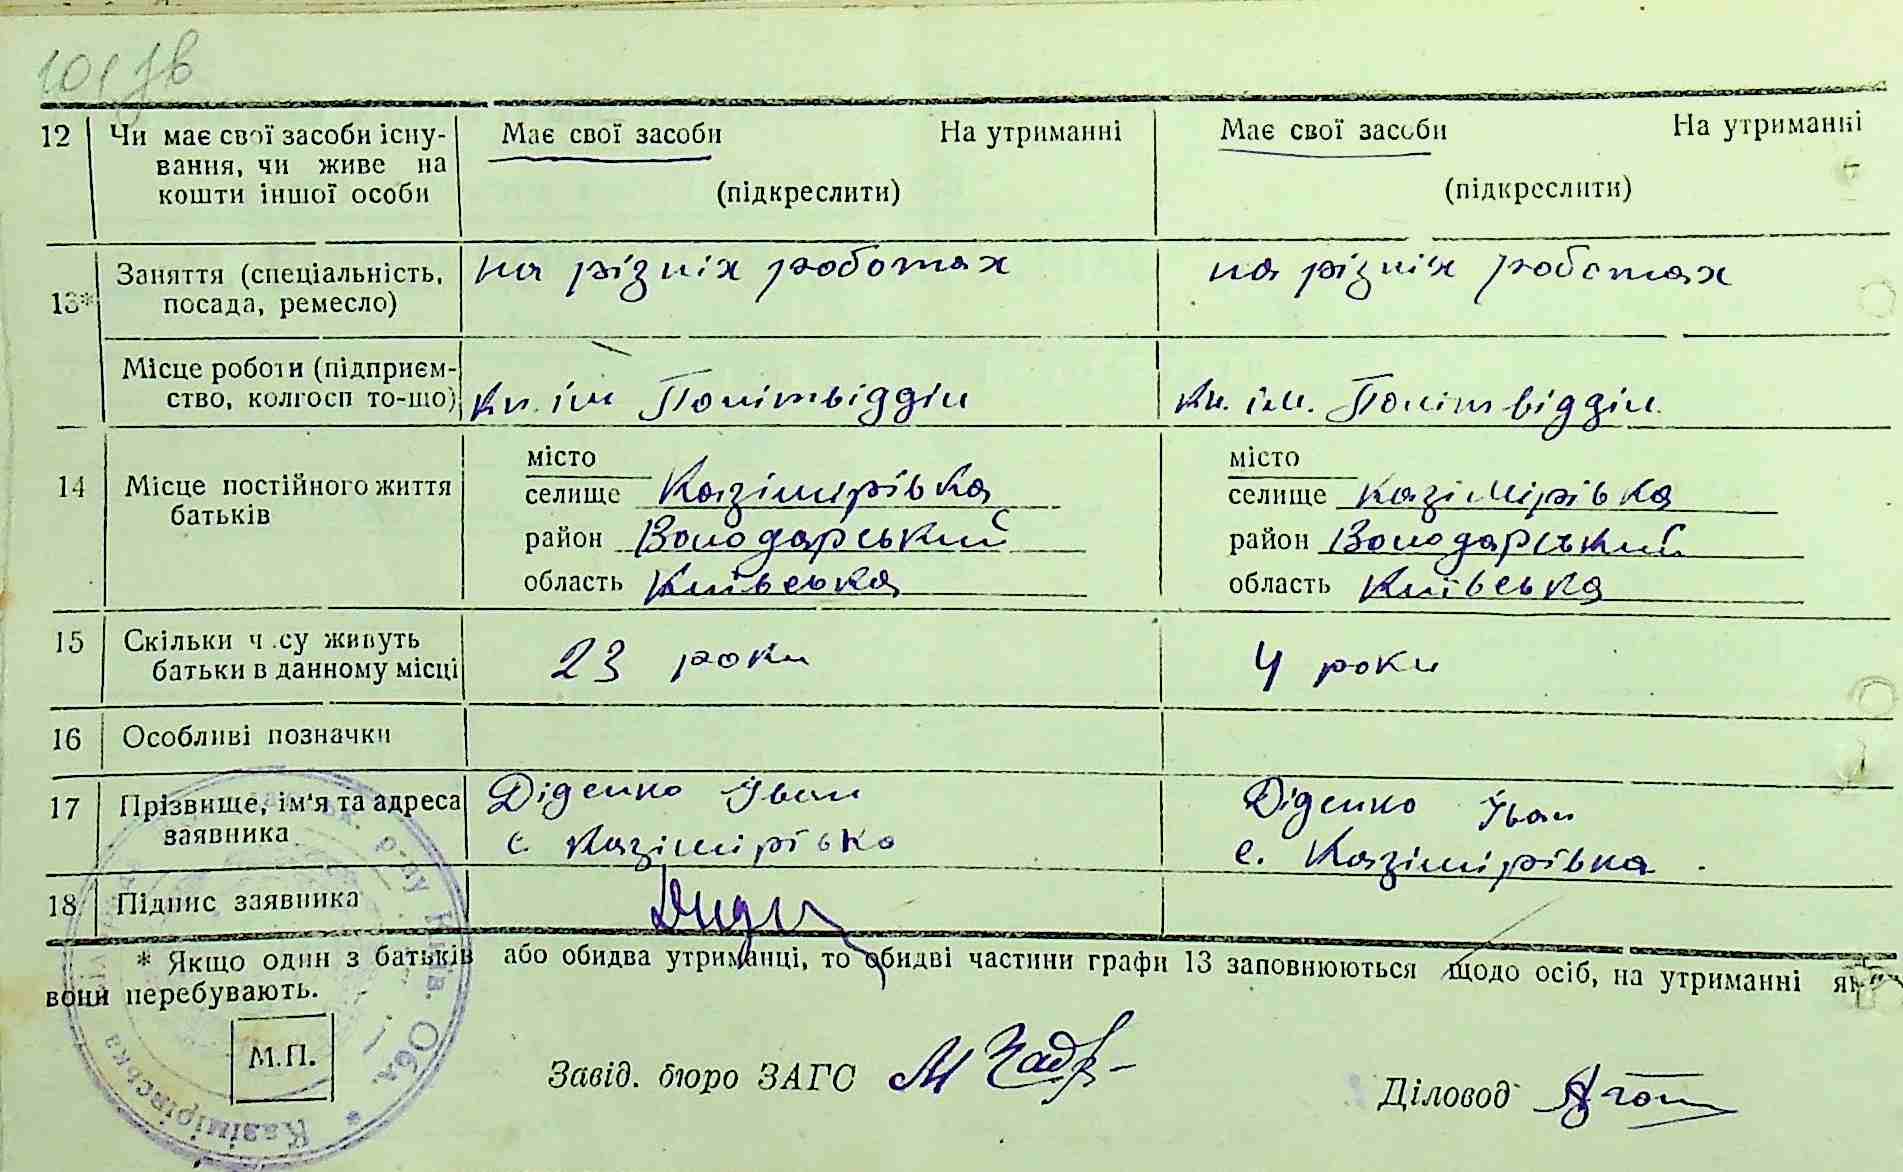 12 Чи має свої засоби існу- Має свої засоби На утриманні Має свої засоби На утриманні
вання, чи живе на
кошти іншої особи (підкреслити) (підкреслити)
13* Заняття (спеціальність, на різніх роботах на різніх роботах
посада, ремесло)
Місце роботи (підприєм-
ство, колгосп то-що) кл. ім Политвідділ кл. ім. Політвідділ.
14 Місце постійного життя місто місто
батьків селище Казімірівка селище Казімірівка
район Володарський район Володарський
область Київська область Київська
15 Скільки ч су живуть 23 роки 4 роки
батьки в данному місці
16 Особливі позначки
17 Прізвище, ім'я та адреса Діденко Іван Діденко Іван
заявника с. Казімірівка с. Казімірівка.
18 Підпис заявника
* Якщо один з батьків або обидва утриманці, то обидві частини графи 13 заповнюються щодо осіб, на утриманні яких
вони перебувають.
М.П. Завід. бюро ЗАГС Діловод
р-ну Київ. Обл. * Казімірівська